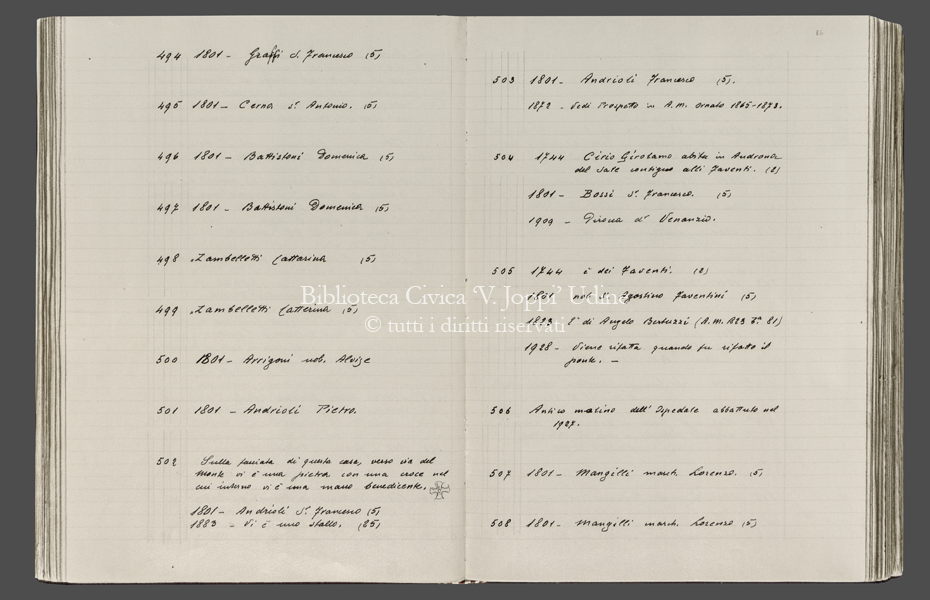 494 1801 - Graffi d. Francesco (5)
495 1801 - Cerna d.r Antonio. (5)
496 1801 - Battistoni Domenica (5)
497 1801 - Battistoni Domenica (5)
498 Zambelletti Cattarina (5)
499 Zambelletti Catterina (5)
500 1801 - Arrigoni nob. Alvise
501 1801 - Andrioli Pietro.
502 Sulla facciata di questa casa, verso via del
Monte vi è una pietra con una croce nel
cui interno vi è una mano benedicente.
1801 - Andrioli d.r Francesco (5)
1883 - Vi è uno stallo. (25)
86
503 1801 - Andrioli Francesco (5).
1872 - Vedi Prospetto in A.M. Ornato 1865-1873.
504 1744 Cirio Girolamo abita in Androna
del Sale contigua alli Faventi. (2)
1801 - Bossi d.r Francesco. (5)
1909 - Pirona d.r Venanzio.
505 1744 è dei Faventi. (2)
1801 nob. Agostino Faventini (5)
1823 È di Angelo Bertuzzi (A.M. 1823 81)
1928 - Viene rifatta quando fu rifatto il
ponte. -
506 Antico mulino dell' Ospedale abbattuto nel
1927.
507 1801 - Mangilli march. Lorenzo. (5)
508 1801 - Mangilli march. Lorenzo (5)
Biblioteca Civica 'V. Joppi' Udine
© tutti i diritti riservati